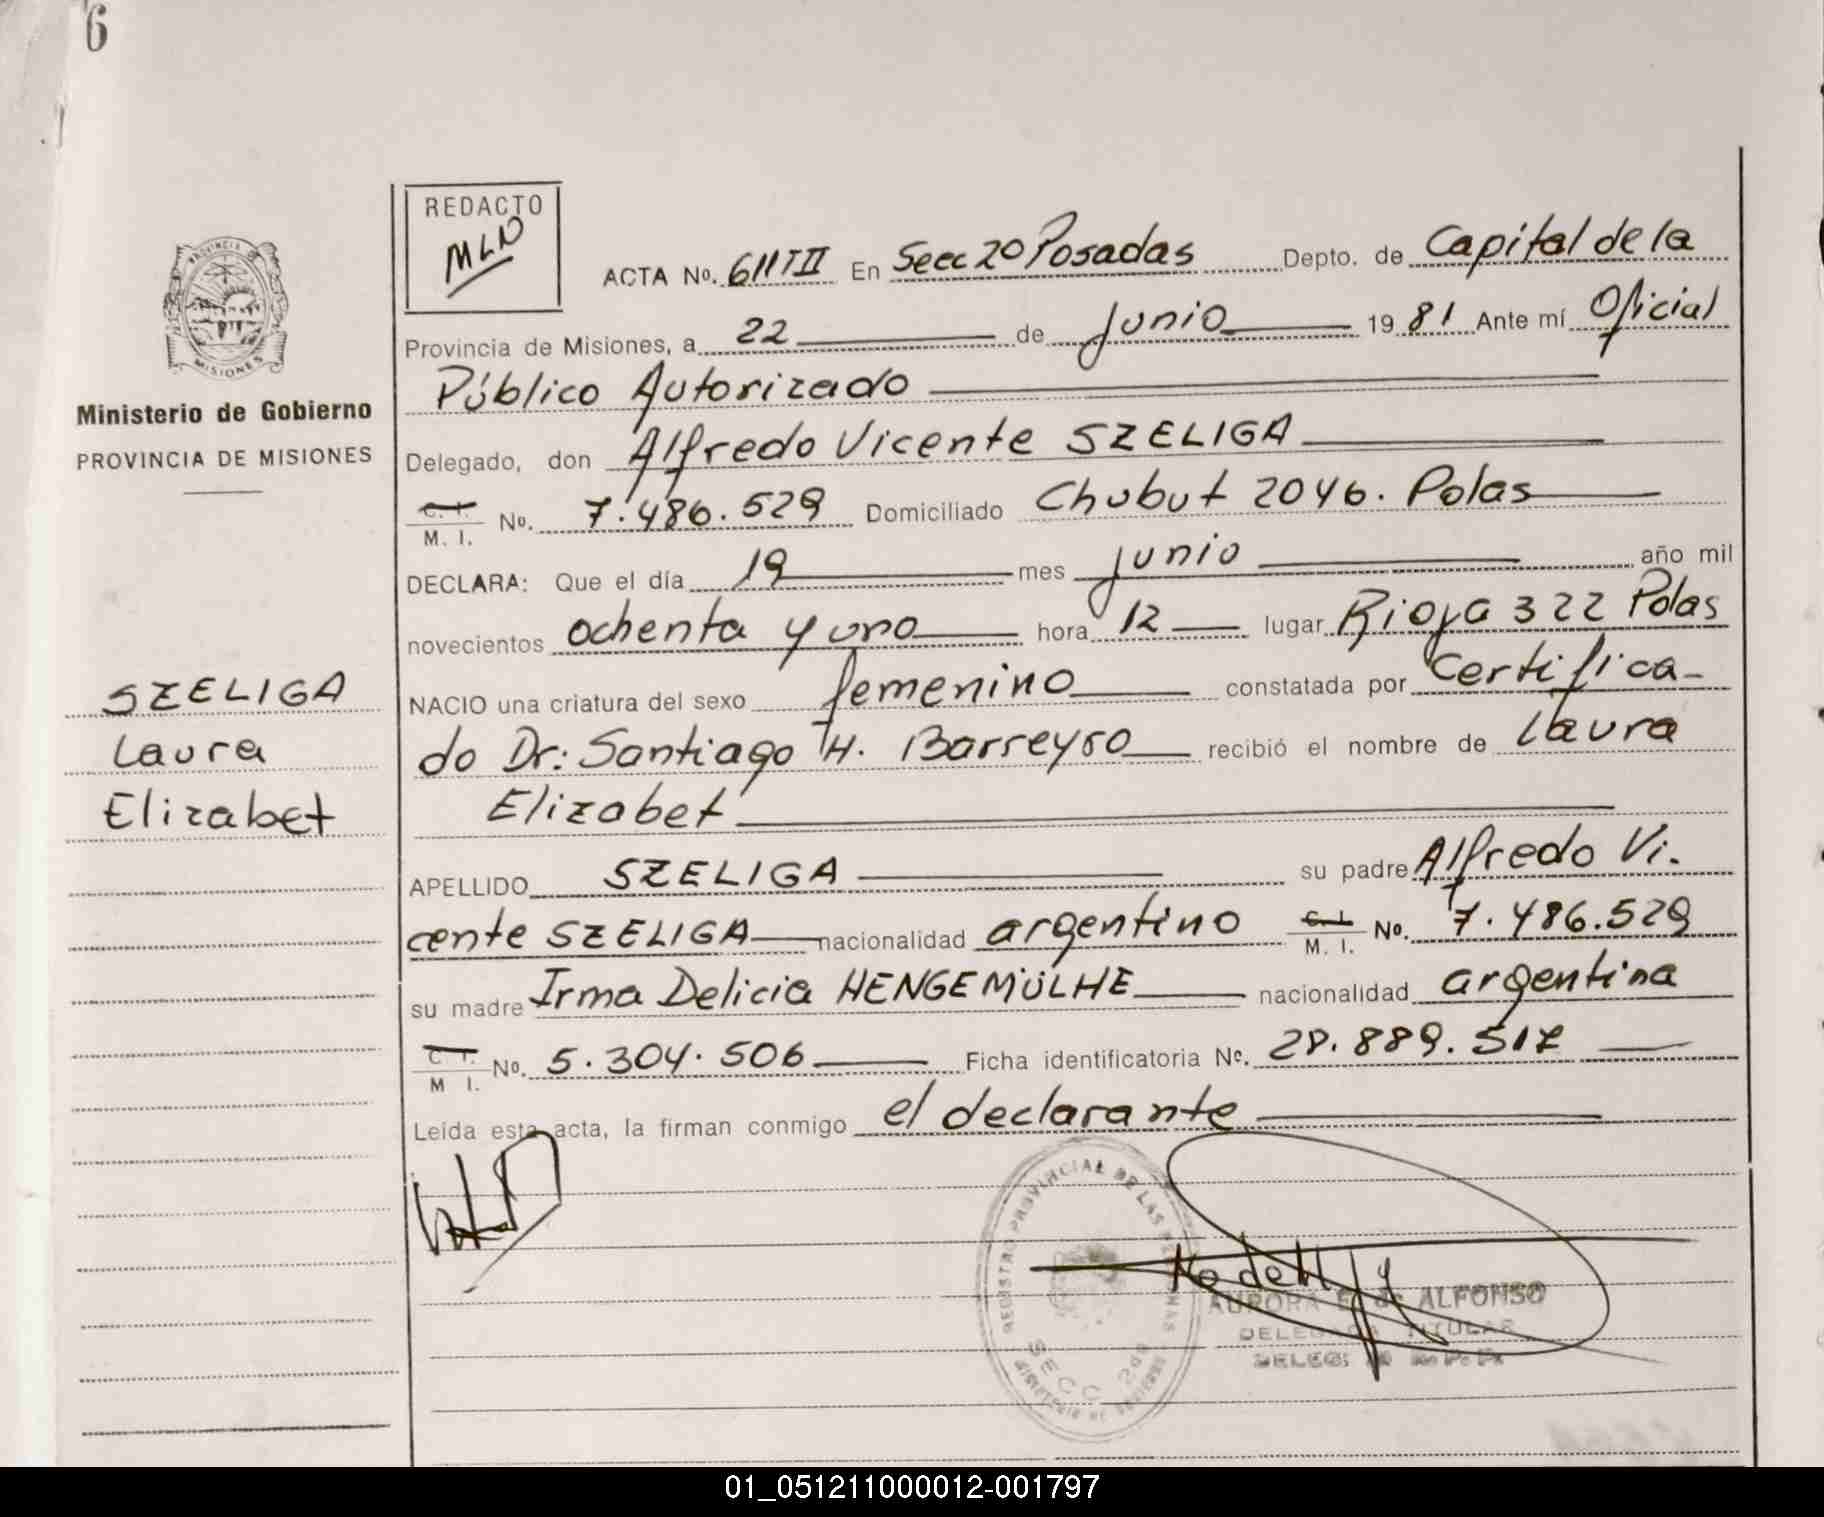 6
REDACTO
MLN
PROVINCIA DE
MISIONES
Ministerio de Gobierno
PROVINCIA DE MISIONES
ACTA No. 611TII En Secc 2º Posadas Depto. de Capital de la
Provincia de Misiones, a 22 de Junio 19 81 Ante mí Oficial
Público Autorizado
Delegado, don Alfredo Vicente SZELIGA
C. I.
M. I. No. 7.486.529 Domiciliado Chubut 2046. Polas
DECLARA: Que el día 19 mes junio año mil
novecientos ochenta y uno hora 12 lugar Rioja 322 Polas
NACIO una criatura del sexo femenino constatada por Certifica-
do Dr: Santiago H. Barreyro recibió el nombre de Laura
Elizabet
SZELIGA
Laura
Elizabet
APELLIDO SZELIGA su padre Alfredo Vi.
cente SZELIGA nacionalidad argentino C. I. M. I. No. 7.486.529
su madre Irma Delicia HENGEMÜLHE nacionalidad argentina
C. I.
M I. No. 5.304.506 Ficha identificatoria No. 28.889.517
Leída esta acta, la firman conmigo el declarante
REGISTRO PROVINCIAL DE LAS PERSONAS
SECC 2da
MINISTERIO DE GOBIERNO
AURORA E. de ALFONSO
DELEGADA TITULAR
01_051211000012-001797